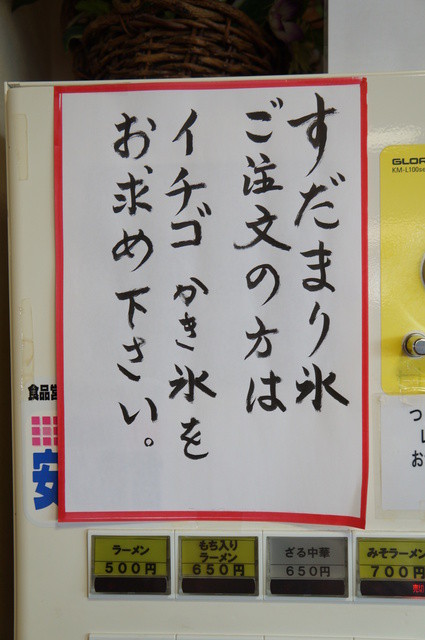 すだまり氷
ご注文の方は
イチゴ かき氷を
お求め下さい。
GLOR
KM-L100se
食品営
安
ラーメン
500円
もち入り
ラーメン
650円
ざる中華
650円
みそラーメン
700円